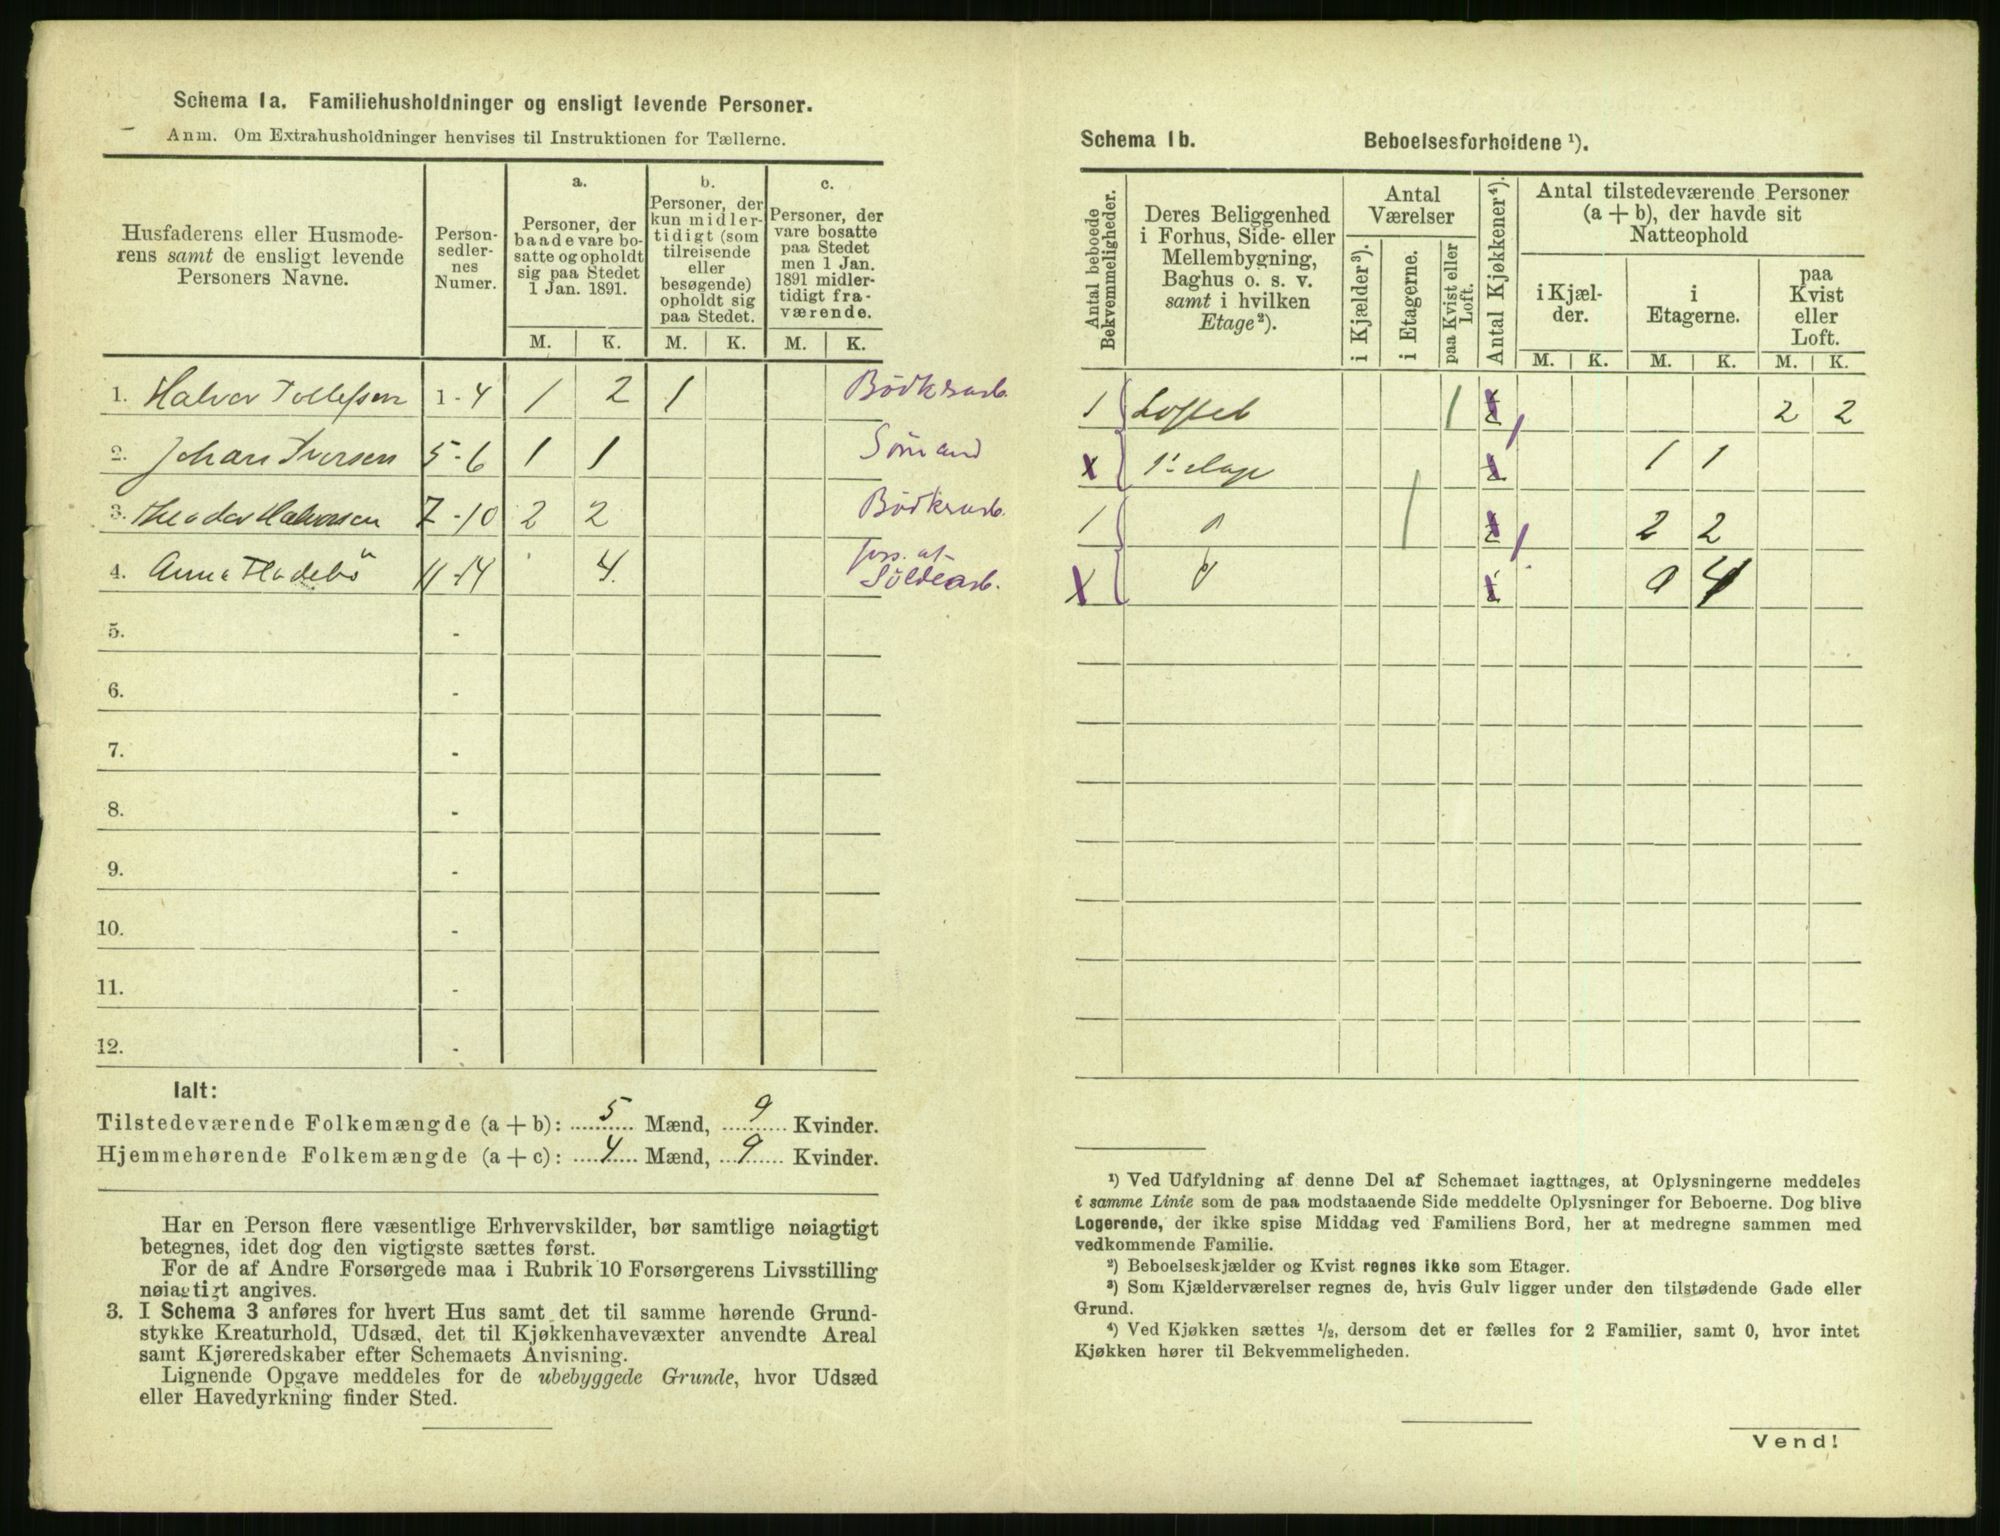 Schema 1a. Familiehusholdninger og ensligt levende Personer.
Anm. Om Extrahusholdninger henvises til Instruktionen for Tællerne.
Husfaderens eller Husmode-
rens samt de ensligt levende
Personers Navne.
Person-
sedler-
nes
Numer.
a.
Personer, der
baade vare bo-
satte og opholdt
sig paa Stedet
1 Jan. 1891.
b.
Personer, der
kun midler-
tidigt (som
tilreisende
eller
besøgende)
opholdt sig
paa Stedet.
c.
Personer, der
vare bosatte
paa Stedet
men 1 Jan.
1891 midler-
tidigt fra-
værende.
M. K. M. K. M. K.
1. Halvor Tollefsen 1-4 1 2 1 Bödkerarb.
2. Johan Iversen 5-6 1 1 Sömand
3. Theodor Halvorsen 7-10 2 2 Bödkerarb.
4. Anna Flodebö 11-14 4. fors. af
Söldearb.
5. -
6. -
7. -
8. -
9. -
10. -
11. -
12. -
Ialt:
Tilstedeværende Folkemængde (a + b): 5 Mænd, 9 Kvinder.
Hjemmehørende Folkemængde (a + c): 4 Mænd, 9 Kvinder.
Har en Person flere væsentlige Erhvervskilder, bør samtlige nøiagtigt
betegnes, idet dog den vigtigste sættes først.
For de af Andre Forsørgede maa i Rubrik 10 Forsørgerens Livsstilling
nøiagtigt angives.
3. I Schema 3 anføres for hvert Hus samt det til samme hørende Grund-
stykke Kreaturhold, Udsæd, det til Kjøkkenhavevæxter anvendte Areal
samt Kjøreredskaber efter Schemaets Anvisning.
Lignende Opgave meddeles for de ubebyggede Grunde, hvor Udsæd
eller Havedyrkning finder Sted.
Schema 1b. Beboelsesforholdene ¹).
Antal beboede
Bekvemmeligheder.
Deres Beliggenhed
i Forhus, Side- eller
Mellembygning,
Baghus o. s. v.
samt i hvilken
Etage²).
Antal
Værelser
i Kjælder³).
i Etagerne.
paa Kvist eller
Loft.
Antal Kjøkkener⁴).
Antal tilstedeværende Personer
(a + b), der havde sit
Natteophold
i Kjæl-
der.
i
Etagerne.
paa
Kvist
eller
Loft.
M. K. M. K. M. K.
1 Loftet 1 1 2 2
x 1ˢ Etage 1 1
1 " 1 1 2 2
X " 0 4
¹) Ved Udfyldning af denne Del af Schemaet iagttages, at Oplysningerne meddeles
i samme Linie som de paa modstaaende Side meddelte Oplysninger for Beboerne. Dog blive
Logerende, der ikke spise Middag ved Familiens Bord, her at medregne sammen med
vedkommende Familie.
²) Beboelseskjælder og Kvist regnes ikke som Etager.
³) Som Kjælderværelser regnes de, hvis Gulv ligger under den tilstødende Gade eller
Grund.
⁴) Ved Kjøkken sættes ½, dersom det er fælles for 2 Familier, samt 0, hvor intet
Kjøkken hører til Bekvemmeligheden.
Vend!